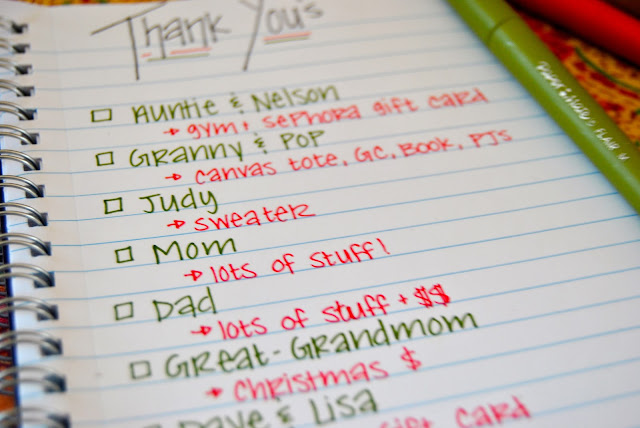 Thank You's
Auntie & Nelson
→ gym + sephora gift card
Granny & Pop
→ canvas tote, GC, Book, PJs
Judy
→ sweater
Mom
→ lots of stuff!
Dad
→ lots of stuff + $$
Great-Grandmom
→ christmas $
Dave & Lisa
gift card
Paper Mate Flair